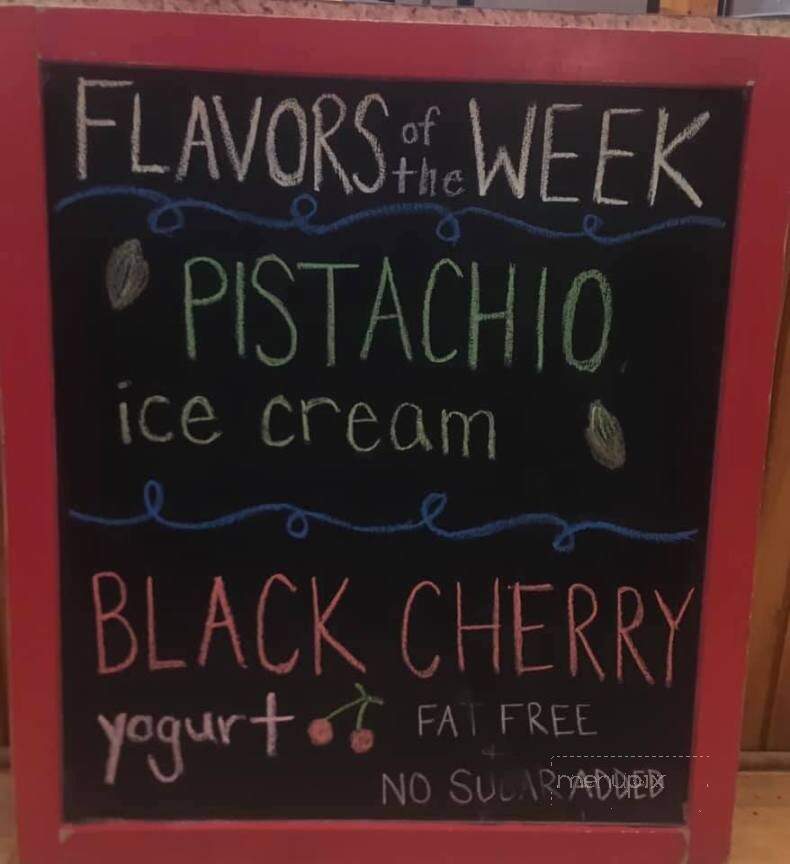 FLAVORS of the WEEK
PISTACHIO
ice cream
BLACK CHERRY
yogurt FAT FREE
+
NO SUGAR ADDED
menupix